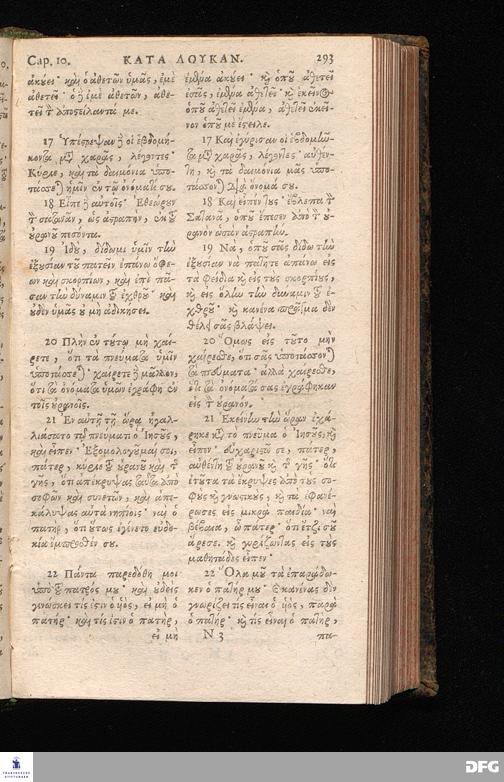 Cap. 10. ΚΑΤΑ ΛΟΥΚΑΝ. 293
ἀκούει· καὶ ὁ ἀθετῶν ὑμᾶς, ἐμὲ
ἀθετεῖ· ὁ δὲ ἐμὲ ἀθετῶν, ἀθε-
τεῖ τὸν ἀποστείλαντά με.
17 Ὑπέστρεψαν δὲ οἱ ἑβδομή-
κοντα μετὰ χαρᾶς, λέγοντες·
Κύριε, καὶ τὰ δαιμόνια ὑπο-
τάσσεται ἡμῖν ἐν τῷ ὀνόματί σου.
18 Εἶπε δὲ αὐτοῖς· Ἐθεώρουν
τὸν σατανᾶν, ὡς ἀστραπὴν, ἐκ τοῦ
οὐρανοῦ πεσόντα.
19 Ἰδοὺ, δίδωμι ὑμῖν τὴν
ἐξουσίαν τοῦ πατεῖν ἐπάνω ὄφε-
ων καὶ σκορπίων, καὶ ἐπὶ πᾶ-
σαν τὴν δύναμιν τοῦ ἐχθροῦ· καὶ
οὐδὲν ὑμᾶς οὐ μὴ ἀδικήσει.
20 Πλὴν ἐν τούτῳ μὴ χαί-
ρετε, ὅτι τὰ πνεύματα ὑμῖν
ὑποτάσσεται· χαίρετε δὲ μᾶλλον,
ὅτι τὰ ὀνόματα ὑμῶν ἐγράφη ἐν
τοῖς οὐρανοῖς.
21 Ἐν αὐτῇ τῇ ὥρᾳ ἠγαλ-
λιάσατο τῷ πνεύματι ὁ Ἰησοῦς,
καὶ εἶπεν· Ἐξομολογοῦμαί σοι,
πάτερ, κύριε τοῦ οὐρανοῦ καὶ τῆς
γῆς, ὅτι ἀπέκρυψας ταῦτα ἀπὸ
σοφῶν καὶ συνετῶν, καὶ ἀπε-
κάλυψας αὐτὰ νηπίοις· ναὶ ὁ
πατὴρ, ὅτι οὕτως ἐγένετο εὐδο-
κία ἔμπροσθέν σου.
22 Πάντα παρεδόθη μοι
ὑπὸ τοῦ πατρός μου· καὶ οὐδεὶς
γινώσκει τίς ἐστιν ὁ υἱὸς, εἰ μὴ ὁ
πατήρ· καὶ τίς ἐστιν ὁ πατὴρ,
εἰ μὴ
ἐμένα ἀκούει· καὶ ὁποῦ ἀθετεῖ
ἐσᾶς, ἐμένα ἀθετεῖ· καὶ ἐκεῖνος
ὁποῦ ἀθετεῖ ἐμένα, ἀθετεῖ ἐκεῖ-
νον ὁποῦ μὲ ἔστειλε.
17 Καὶ ἐγύρισαν οἱ ἑβδομῆν-
τα μετὰ χαρᾶς, λέγοντες· αὐθέν-
τη, καὶ τὰ δαιμόνια μᾶς ὑπο-
τάσσονται διὰ τὸ ὄνομά σου.
18 Καὶ εἶπέν τους· ἔβλεπα τὸν
Σατανᾶ, ὁποῦ ἔπεσεν ἀπὸ τὸν οὐ-
ρανὸν ὡσὰν ἀστραπήν.
19 Νὰ, ὁποῦ σᾶς δίδω τὴν
ἐξουσίαν νὰ πατῆτε ἀπάνω εἰς
τὰ φείδια καὶ εἰς τοὺς σκορπίους,
καὶ εἰς ὅλην τὴν δύναμιν τοῦ ἐ-
χθροῦ· καὶ κανένα πρᾶγμα δὲν
θέλει σᾶς βλάψει.
20 Ὅμως εἰς τοῦτο μὴν
χαίρεσθε, ὅτι σᾶς ὑποτάσσονται
τὰ πνεύματα· ἀλλὰ χαίρεσθε,
ὅτι τὰ ὀνόματά σας ἐγράφθηκαν
εἰς τὸν οὐρανόν.
21 Ἐκείνην τὴν ὥραν ἐχά-
ρηκε μὲ τὸ πνεῦμα ὁ Ἰησοῦς, καὶ
εἶπεν· εὐχαριστῶ σε, πάτερ,
αὐθέντη τοῦ οὐρανοῦ καὶ τῆς γῆς· ὅτι
ἐτοῦτα τὰ ἔκρυψες ἀπὸ τοὺς σο-
φοὺς καὶ γνωστικοὺς, καὶ τὰ ἐφανέ-
ρωσες εἰς μικρὰ παιδία· ναὶ
βέβαια, ὦ πάτερ· ὅτι ἔτζι σοῦ
ἄρεσε. καὶ γυρίζωντας εἰς τοὺς
μαθητάδες εἶπεν·
22 Ὅλα μοῦ τὰ ἐπαράδω-
κεν ὁ πατήρ μου· καὶ κανένας δὲν
γνωρίζει τίς εἶναι ὁ υἱὸς, παρὰ
ὁ πατήρ· καὶ τίς εἶναι ὁ πατὴρ,
N 3 πα-
FRANCKESCHE STIFTUNGEN
DFG